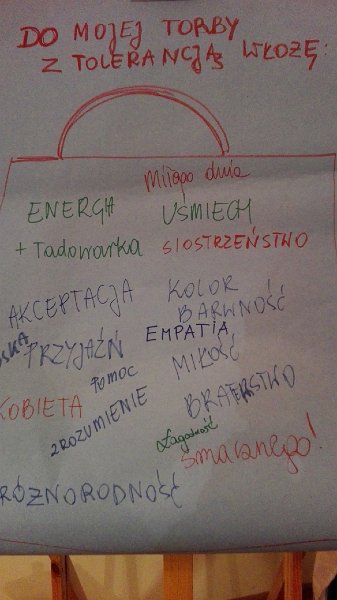 DO MOJEJ TORBY
Z TOLERANCJĄ WŁOŻĘ:
miłego dnia
ENERGIA
UŚMIECH
+ Ładowarka
SIOSTRZEŃSTWO
AKCEPTACJA
KOLOR
BARWNOŚĆ
EMPATIA
PRZYJAŹŃ
MIŁOŚĆ
POMOC
BRATERSTWO
KOBIETA
ZROZUMIENIE
Łagodność
smacznego!
RÓŻNORODNOŚĆ